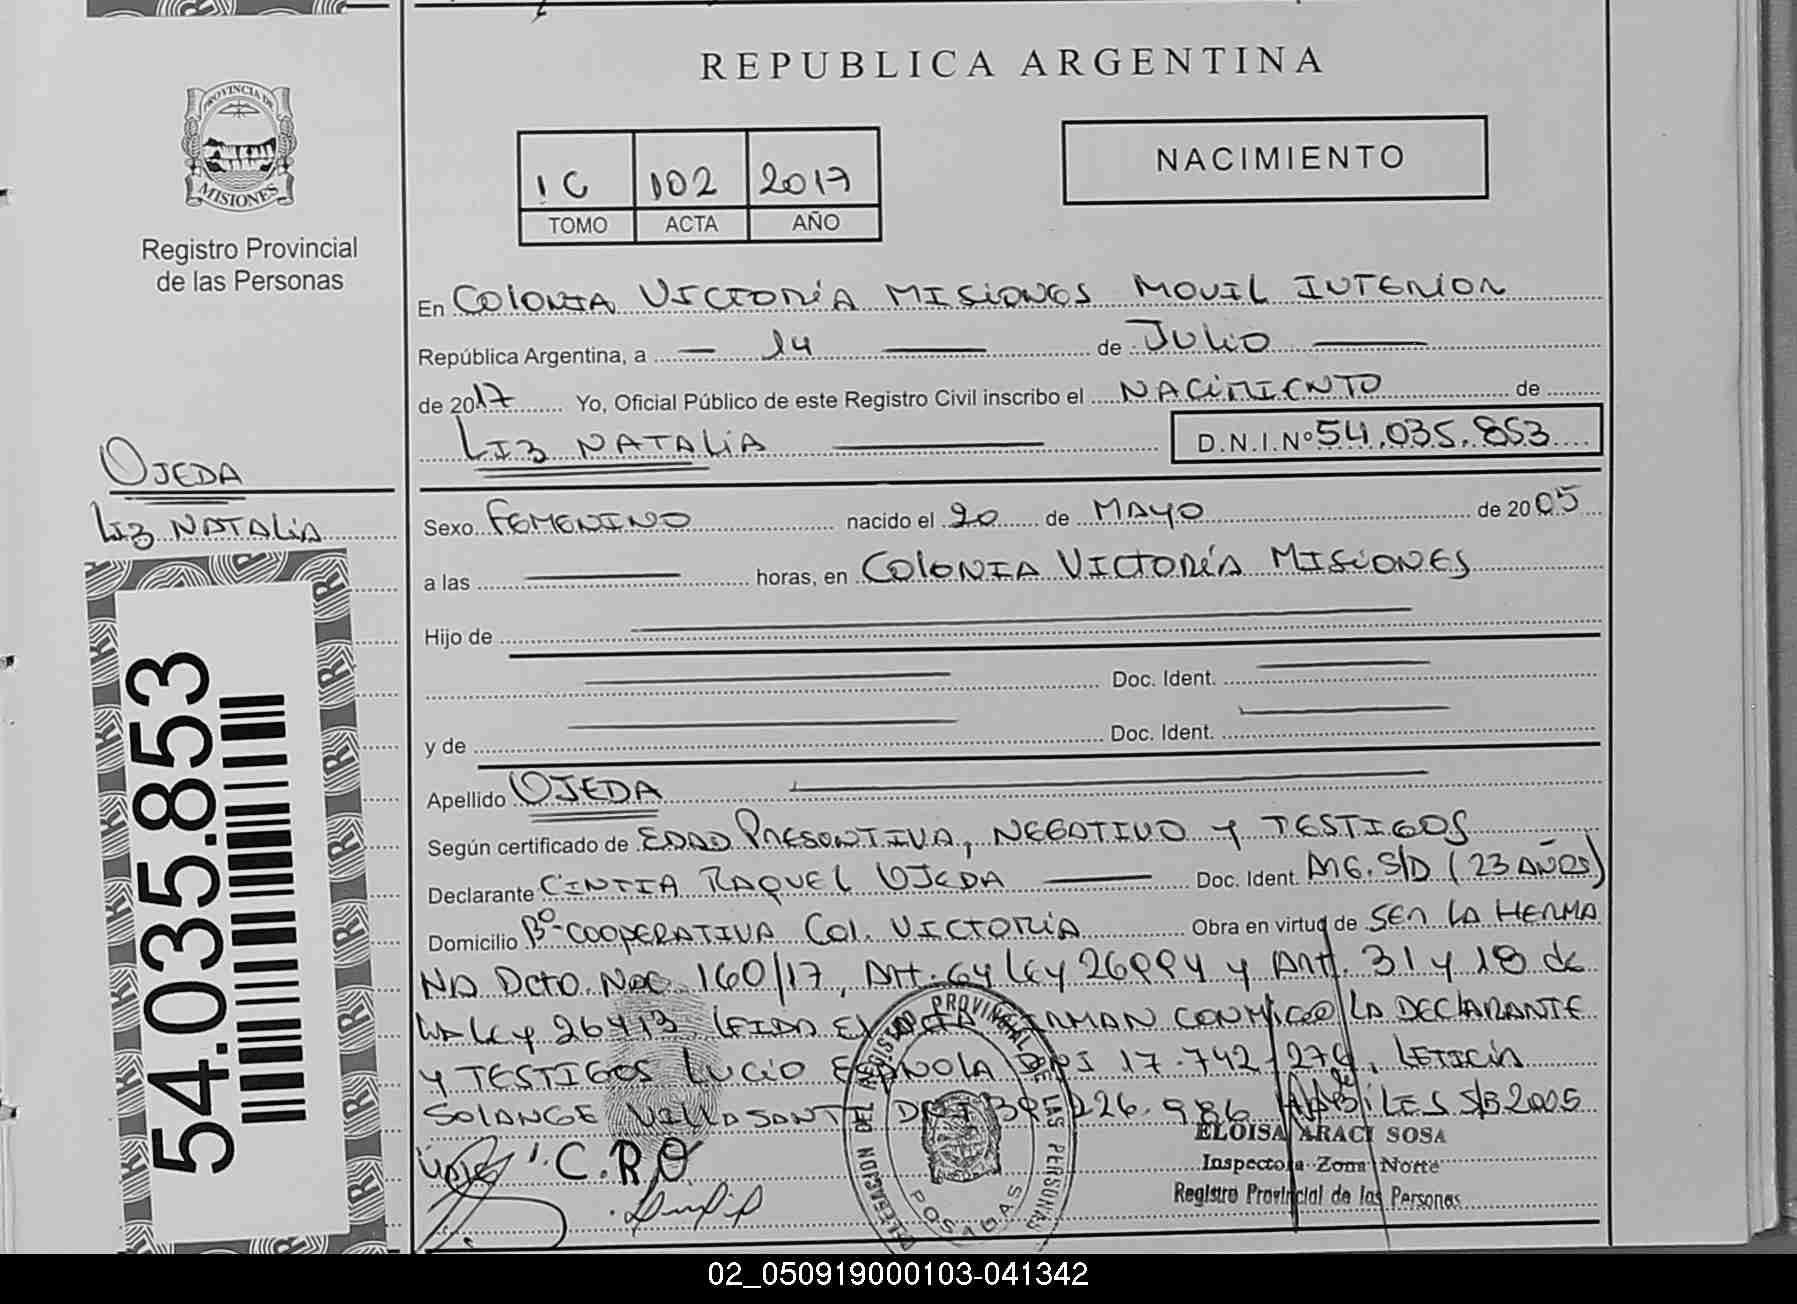 REPUBLICA ARGENTINA
PROVINCIA DE
MISIONES
Registro Provincial
de las Personas
1C 102 2017
TOMO ACTA AÑO
NACIMIENTO
En COLONIA VICTORIA MISIONES MOVIL INTERIOR
República Argentina, a 14 de JULIO
de 2017 Yo, Oficial Público de este Registro Civil inscribo el NACIMIENTO de
LIZ NATALIA D.N.I.Nº 54.035.853
OJEDA
LIZ NATALIA
Sexo FEMENINO nacido el 20 de MAYO de 2005
a las horas, en COLONIA VICTORIA MISIONES
Hijo de
Doc. Ident.
y de Doc. Ident.
Apellido OJEDA
Según certificado de EDAD PRESONTIVA, NEGATIVO Y TESTIGOS
Declarante CINTIA RAQUEL OJEDA Doc. Ident. ARG. S/D (23 AÑOS)
Domicilio Bº COOPERATIVA Col. VICTORIA Obra en virtud de SER LA HERMA
NA Dcto. Nac. 160/17, Art. 64 Ley 26994 y Art. 31 y 18 de
la Ley 26413 LEIDA EL ACTA FIRMAN CONMIGO LA DECLARANTE
Y TESTIGOS LUCIO ESPINOLA DNI 17.742.274, LETICIA
SOLANGE VILLASANTI 226.986 S/B 2005
C.R.O
ELOISA ARACI SOSA
Inspectora Zona Norte
Registro Provincial de las Personas
DELEGACION DEL REGISTRO PROVINCIAL DE LAS PERSONAS
POSADAS
54.035.853
02_050919000103-041342